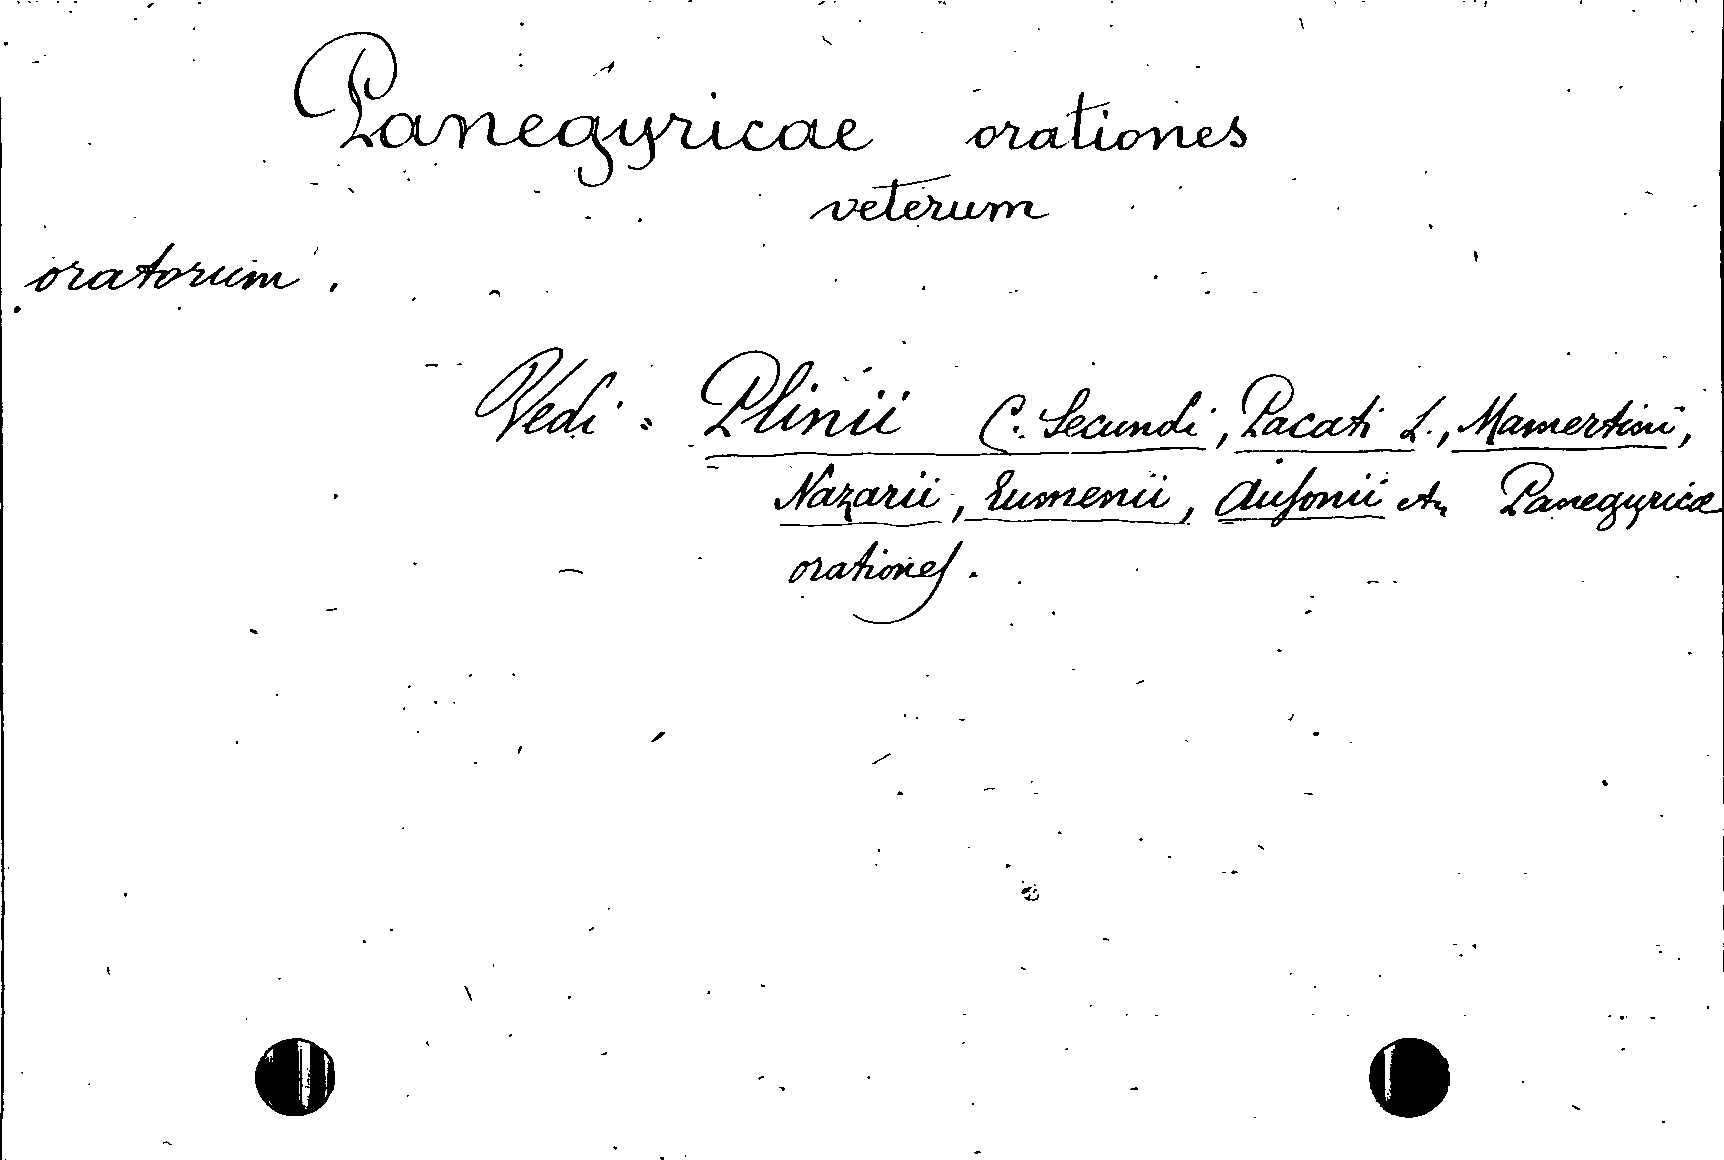 Panegyricae orationes
veterum
oratorum.
Vedi: Plinii C. Secundi, Pacati L., Mamertini,
Nazarii, Eumenii, Ausonii etc. Panegyricæ
orationes.